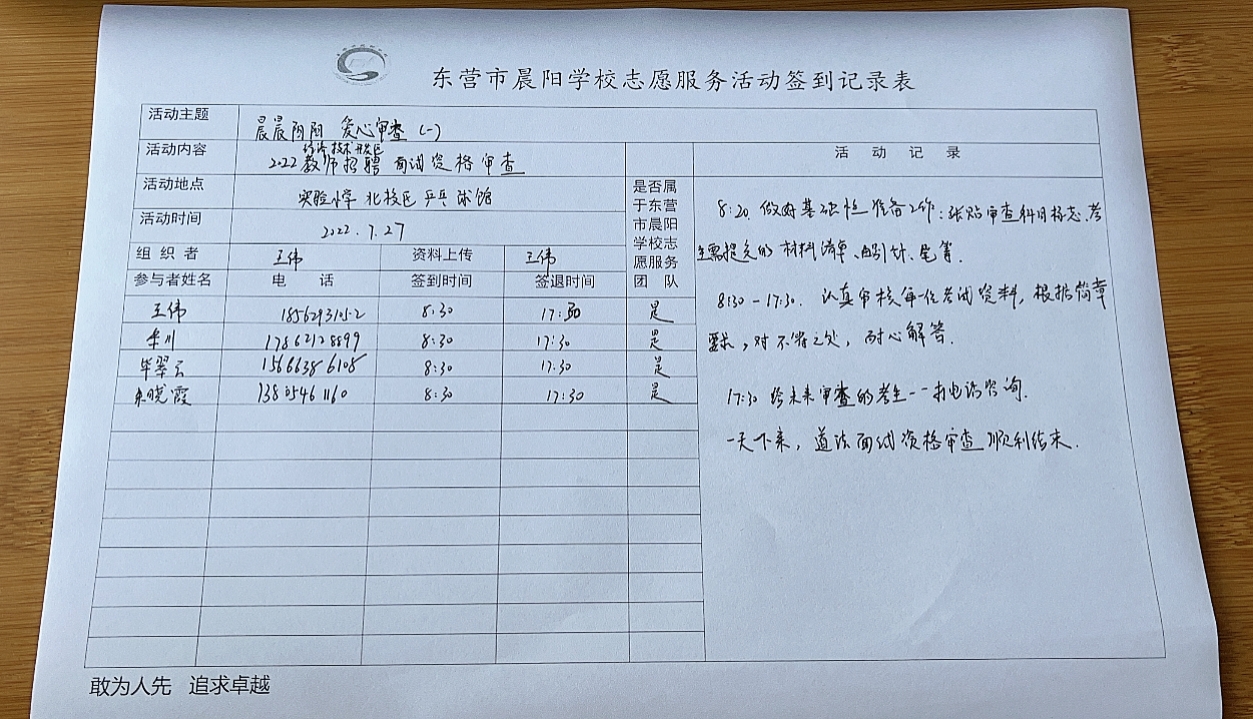 东营市晨阳学校志愿服务活动签到记录表
活动主题 晨晨阳阳 爱心审查（一）
经济技术开发区
活动内容 2022教师招聘面试资格审查
活动地点 实验小学北校区乒乓球馆
活动时间 2022.7.27
组织者 王伟 资料上传 王伟
参与者姓名 电话 签到时间 签退时间 是否属于东营市晨阳学校志愿服务团队
王伟 18562931052 8:30 17:30 是
牟川 17862128899 8:30 17:30 是
毕翠云 15666386108 8:30 17:30 是
朱晓霞 13805461160 8:30 17:30 是
活动记录
8:20 做好基础性准备工作：张贴审查科目标志、考
生需提交的材料清单、曲别针、笔等.
8:30-17:30. 认真审核每一位考试资料，根据简章
要求，对不符之处，耐心解答.
17:30 给未来审查的考生一一打电话咨询.
一天下来，道法面试资格审查顺利结束.
敢为人先 追求卓越